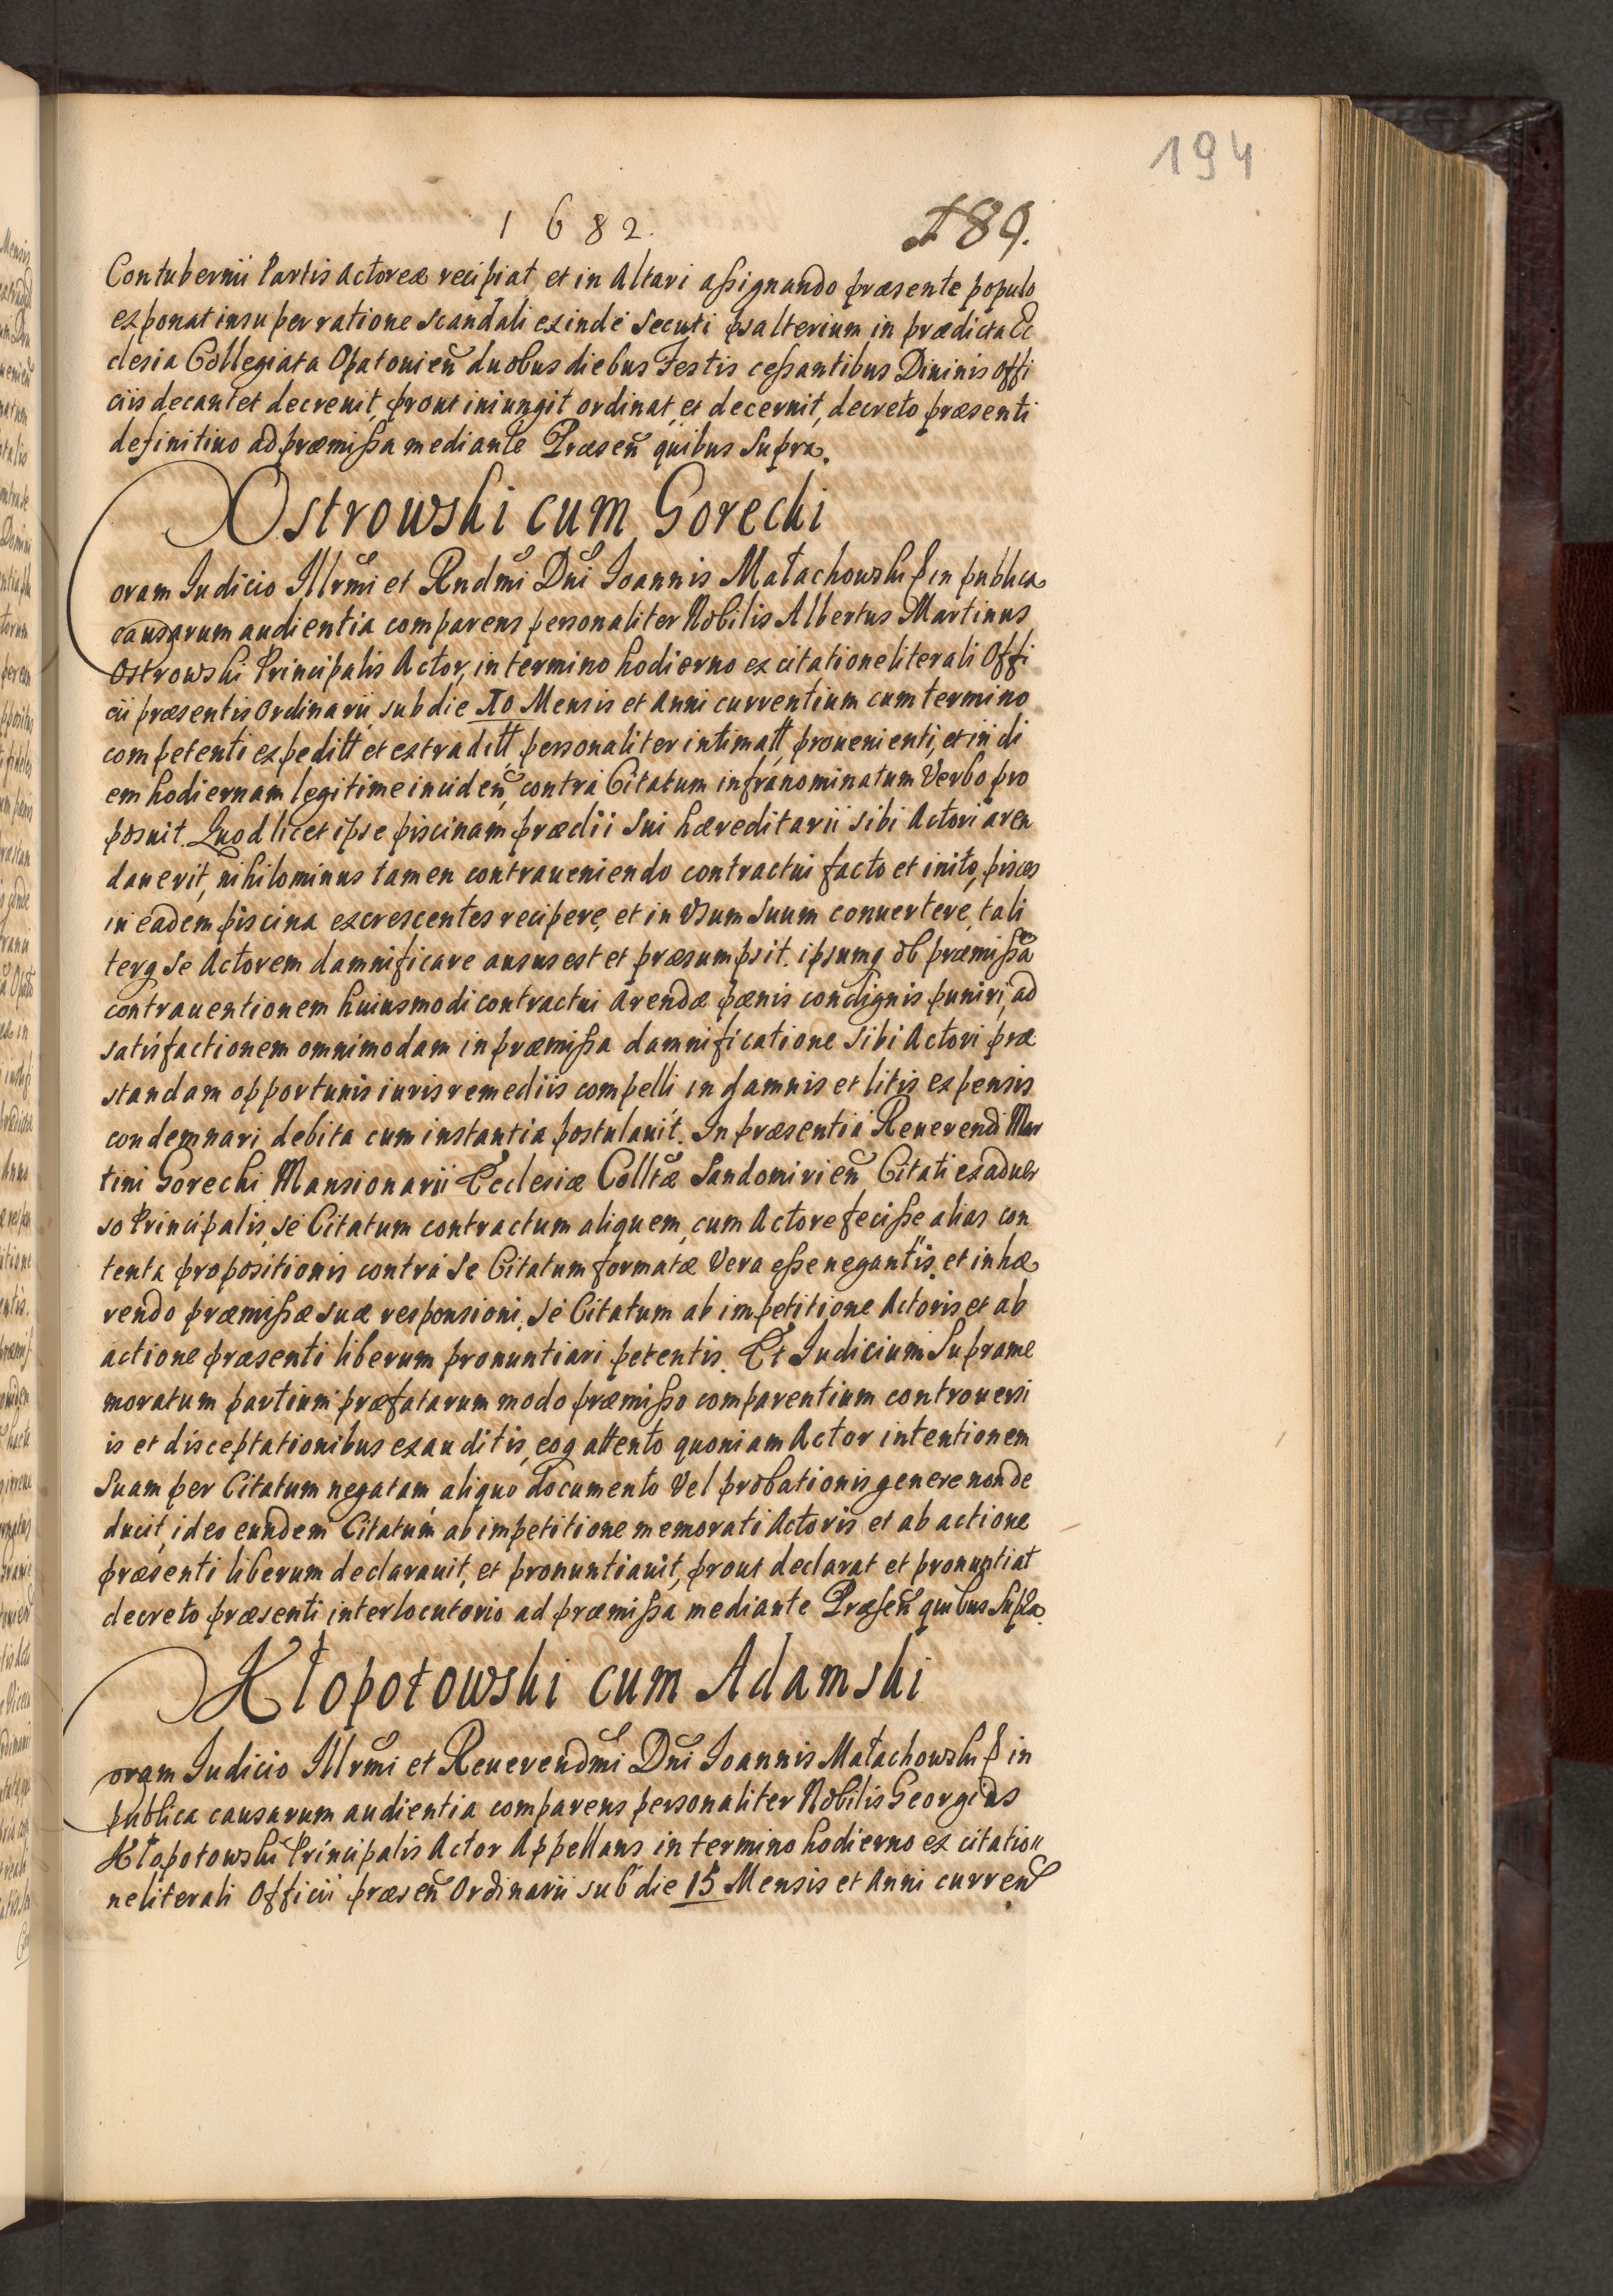 194
1682.
189.
Contubernii Partis Actoreæ recipiat, et in Altari assignando præsente populo
exponat insuper ratione scandali exinde secuti psalterium in prædicta Ec
clesia Collegiata Opatouien̄ duobus diebus Festis cessantibus Diuinis offi
ciis decantet decreuit, prout iniungit ordinat, et decernit, decreto præsenti
definitiuo ad præmissa mediante Præsen̄ quibus supra.
Ostrowski cum Gorecki
Coram Iudicio Illrmi et Rndmi Dni Ioannis Małachowski p in publica
causarum audientia comparens personaliter Nobilis Albertus Martinus
Ostrowski Principalis Actor, in termino hodierno ex citatione literali Offi
cii præsentis Ordinarii, sub die 10 Mensis et Anni currentium cum termino
competenti expeditt et extraditt, personaliter intimatt, prouenienti, et in di
em hodiernam legitime inciden̄ contra Citatum infranominatum Verbo pro
posuit. Quod licet ipse piscinam prædii sui hæreditarii sibi Actori aren
dauerit, nihilominus tamen contraueniendo contractui facto et inito, pisces
in eadem piscina excrescentes recipere, et in Vsum suum conuertere, tali
terq se Actorem damnificare ausus est et præsumpsit. ipsumq ob præmissā
contrauentionem huiusmodi contractui Arendæ pænis condignis puniri, ad
satisfactionem omnimodam in præmissa damnificatione sibi Actori præ
standam opportunis iuris remediis compelli, in damnis et litis expensis
condemnari, debita cum instantia postulauit. In præsentia Reuerendi Mar
tini Gorecki Mansionarii Ecclesiæ Colltæ Sandomirien̄ Citati ex aduer
so Principalis, se Citatum contractum aliquem, cum Actore fecisse alias con
tenta propositionis contra se Citatum formatæ Vera esse negantis, et inhæ
rendo præmissæ suæ responsioni, se Citatum ab impetitione Actoris et ab
actione præsenti liberum pronuntiari petentis. Et Iudicium Suprame
moratum partium præfatarum modo præmisso comparentium controuersi
is et disceptationibus exauditis, eoq attento quoniam Actor intentionem
suam per Citatum negatam, aliquo documento Vel probationis genere non de
ducit, ideo eundem Citatum ab impetitione memorati Actoris et ab actione
præsenti liberum declarauit, et pronuntiauit, prout declarat et pronuntiat
decreto præsenti interlocutorio ad præmissa mediante Præsen̄ quibus supra.
Kłopotowski cum Adamski
Coram Iudicio Illrmi et Reuerendmi Dni Ioannis Małachowski p in
publica causarum audientia comparens personaliter Nobilis Georgius
Kłopotowski Principalis Actor Appellans in termino hodierno ex citatio
ne literali Officii præsen̄ Ordinarii sub die 15 Mensis et Anni curren